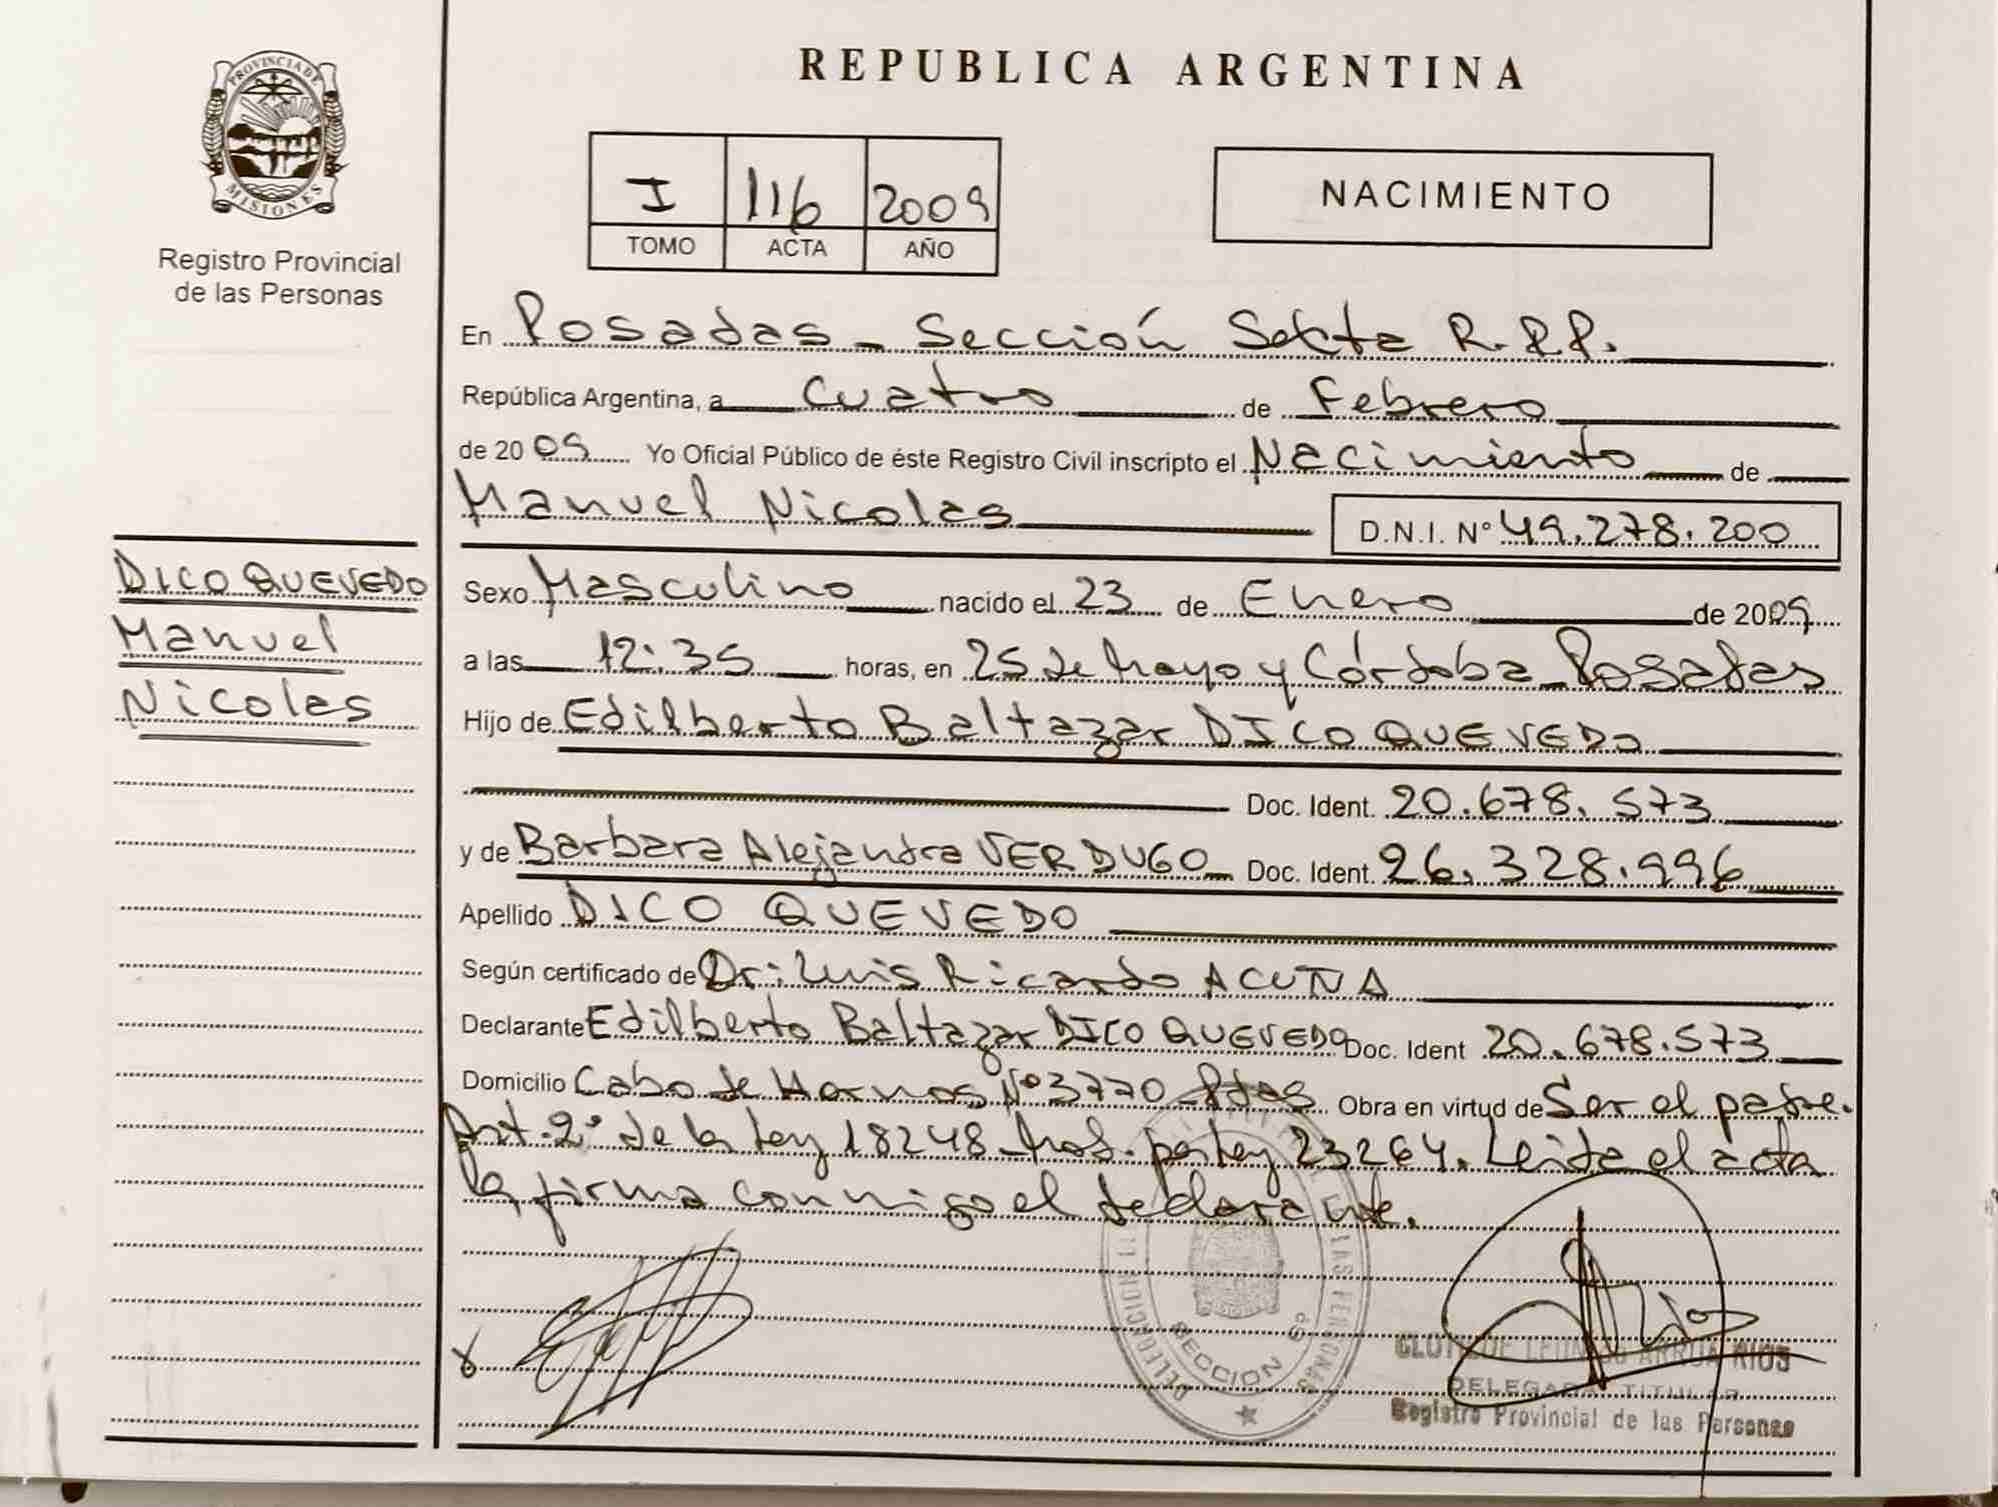 REPUBLICA ARGENTINA
PROVINCIA DE
MISIONES
Registro Provincial
de las Personas
I 116 2009
TOMO ACTA AÑO
NACIMIENTO
En Posadas _ Sección Sexta R.P.P.
República Argentina, a Cuatro de Febrero
de 20 09 Yo Oficial Público de éste Registro Civil inscripto el Nacimiento de
Manuel Nicolas D.N.I. Nº 49.278.200
DICO QUEVEDO
Manuel
Nicolas
Sexo Masculino nacido el 23 de Enero de 2009
a las 12:35 horas, en 25 de Mayo y Córdoba _ Posadas
Hijo de Edilberto Baltazar DICO QUEVEDO
Doc. Ident. 20.678.573
y de Barbara Alejandra VERDUGO Doc. Ident. 26.328.996
Apellido DICO QUEVEDO
Según certificado de Dr: Luis Ricardo ACUÑA
Declarante Edilberto Baltazar DICO QUEVEDO Doc. Ident 20.678.573
Domicilio Cabo de Hornos Nº 3770 _ Pdas Obra en virtud de Ser el padre.
Art. 2º de la Ley 18248 _ Mod. por Ley 23264. Leída el acta
la firma conmigo el declarante.
SECCION 6º
DELEGADA TITULAR
Registro Provincial de las Personas